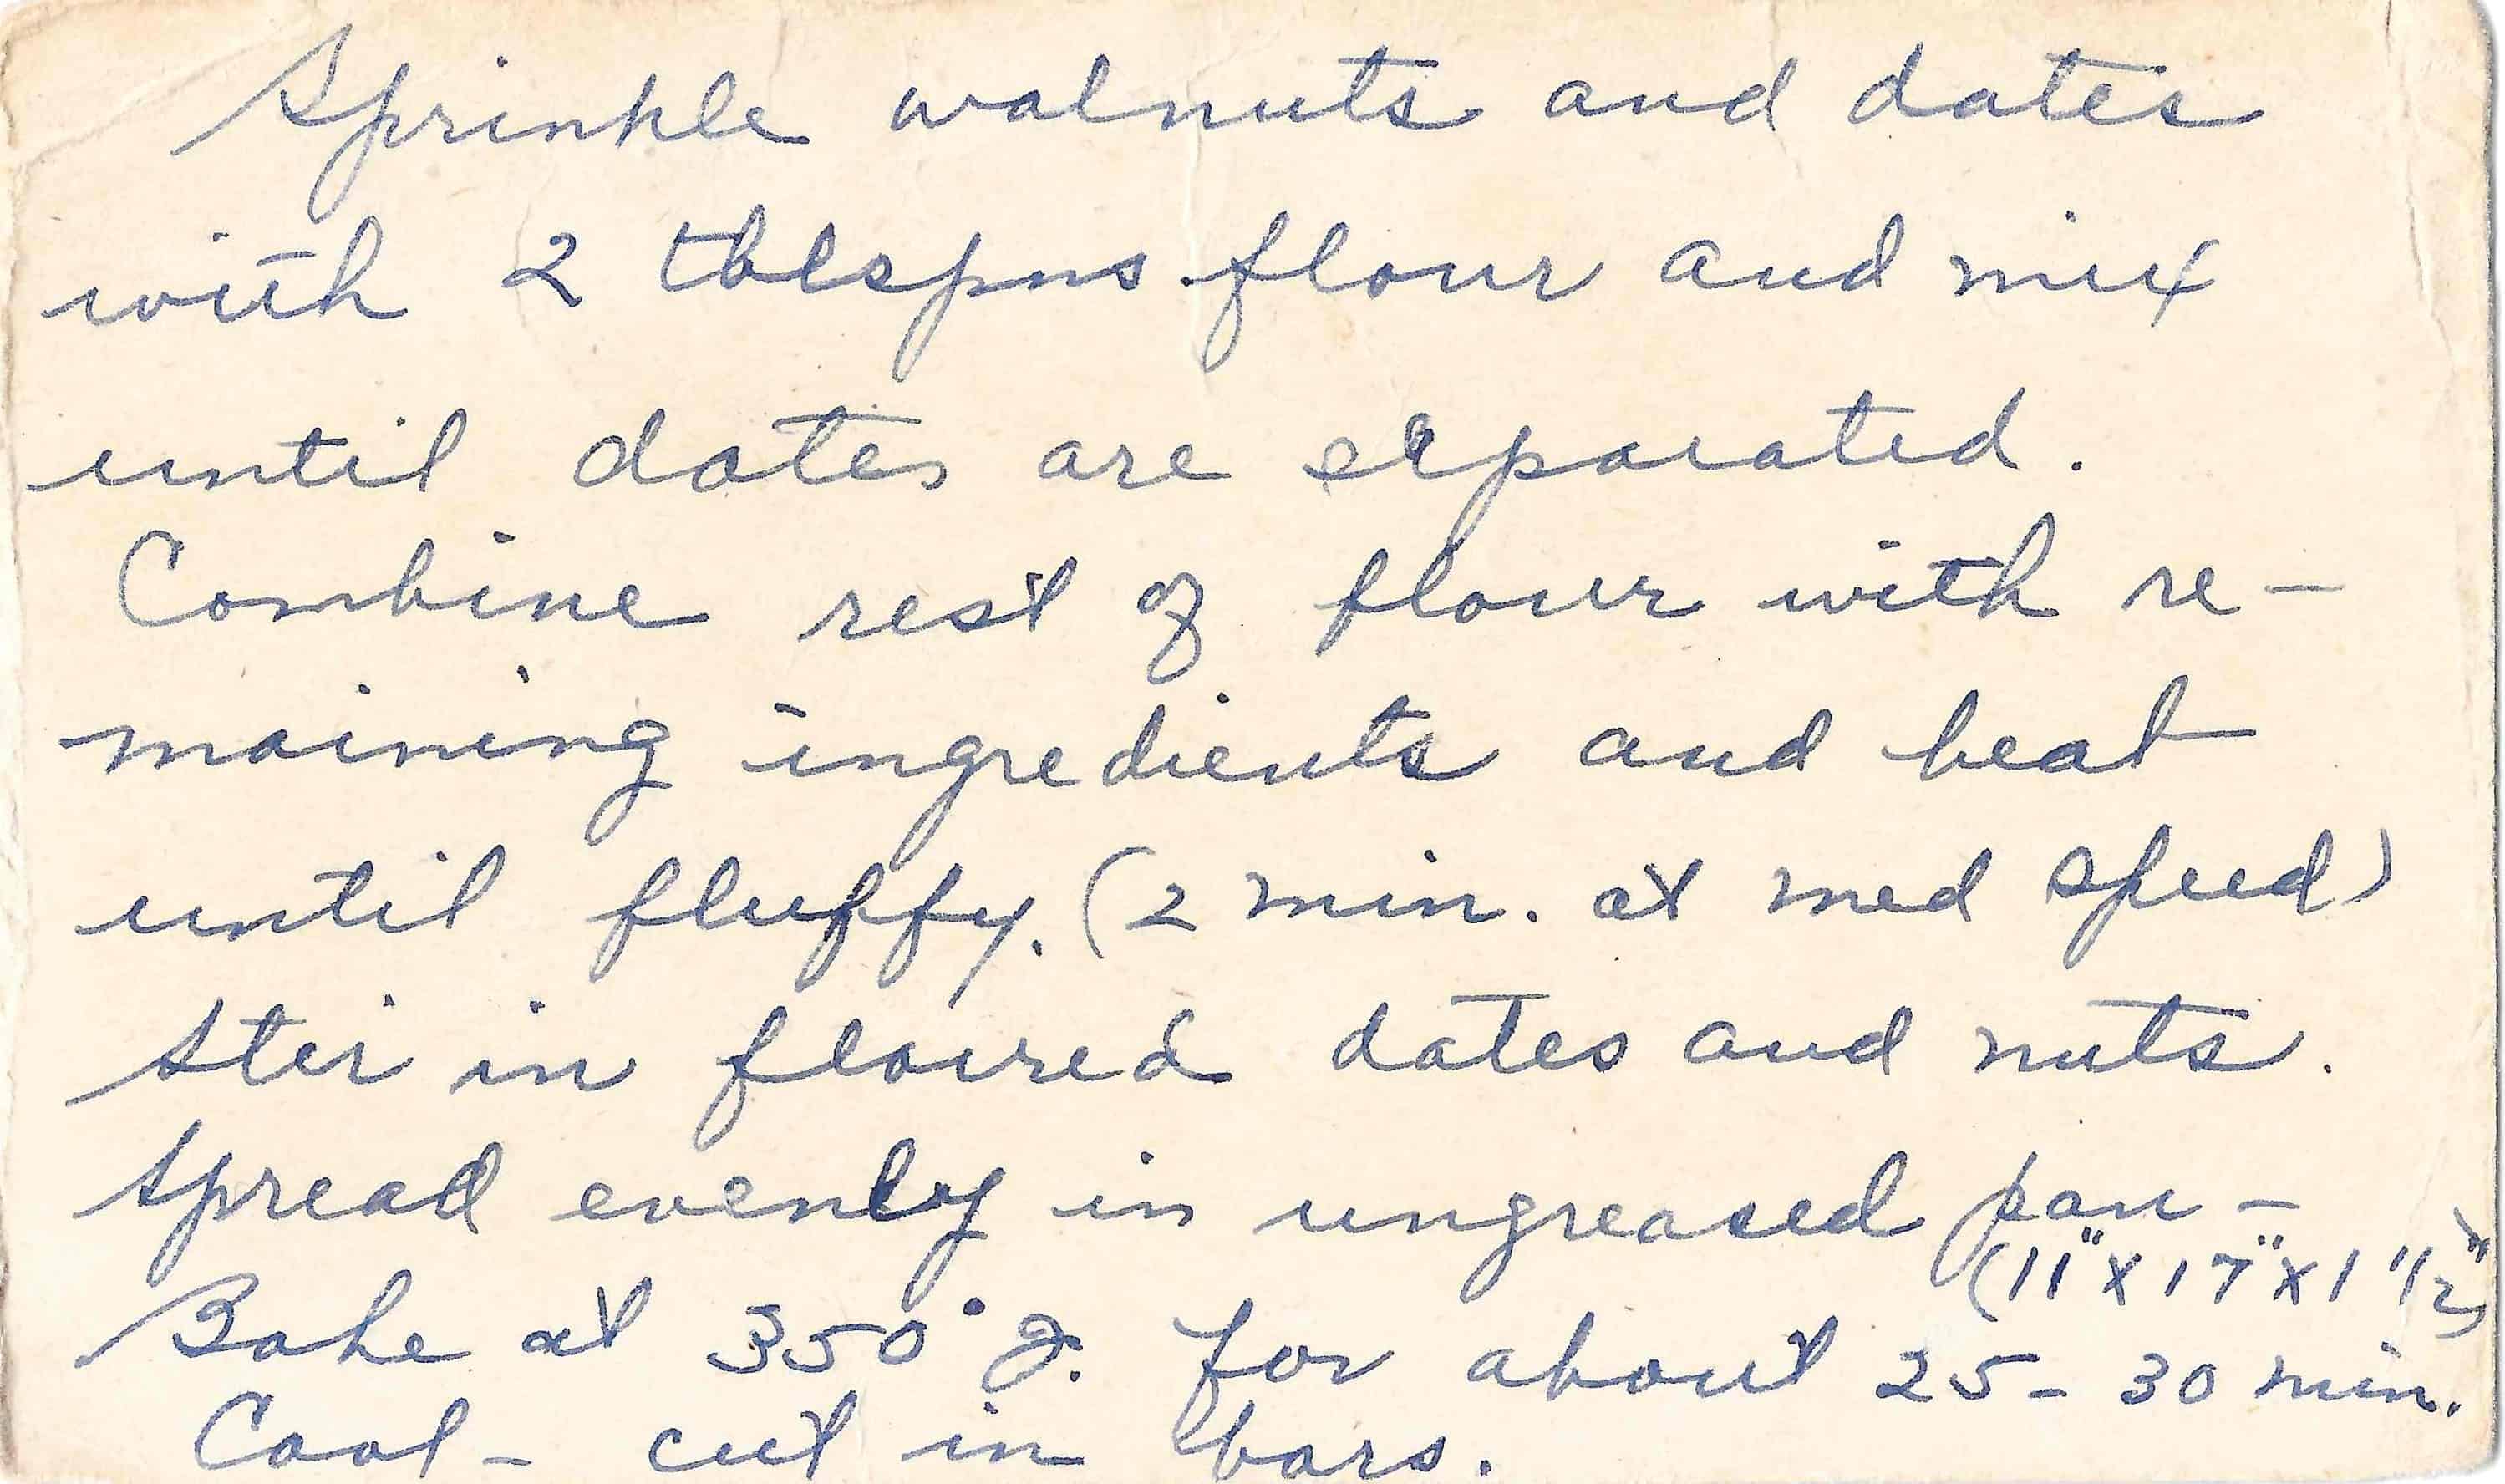 Sprinkle walnuts and dates
with 2 tblspns flour and mix
until dates are separated.
Combine rest of flour with re-
maining ingredients and beat
until fluffy. (2 min. at med speed)
Stir in floured dates and nuts.
Spread evenly in ungreased pan -
(11" x 17" x 1 1/2")
Bake at 350° F. for about 25 - 30 min.
Cool - cut in bars.